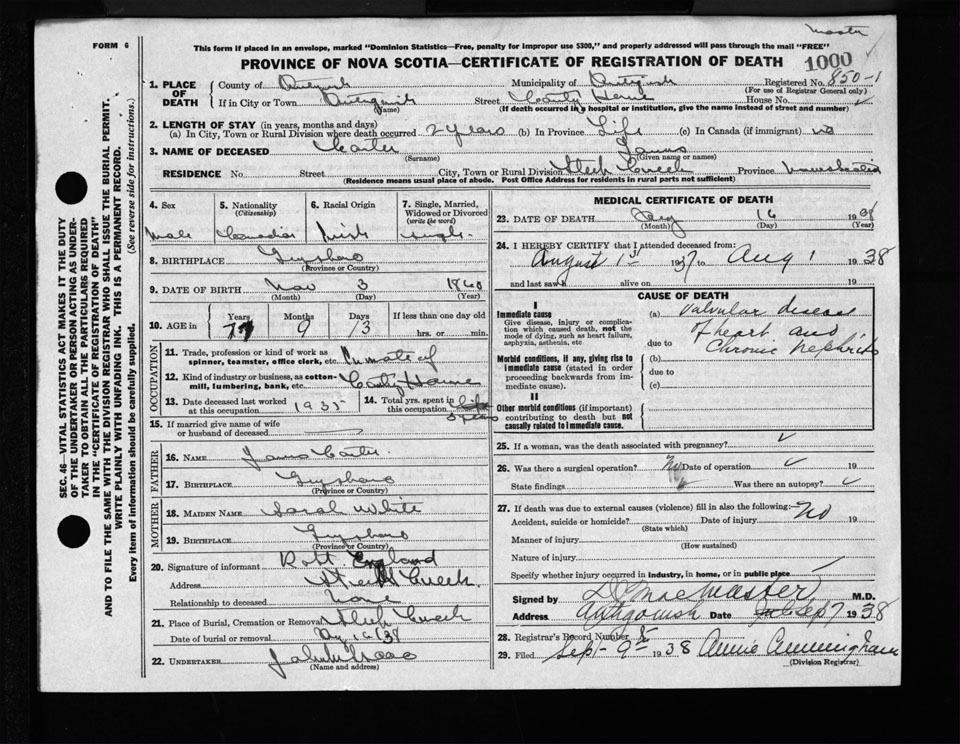 Master
FORM 6
This form if placed in an envelope, marked "Dominion Statistics—Free, penalty for improper use $300," and properly addressed will pass through the mail "FREE"
PROVINCE OF NOVA SCOTIA—CERTIFICATE OF REGISTRATION OF DEATH 1000
1. PLACE OF DEATH
County of Municipality of Registered No. 850-1
(For use of Registrar General only)
If in City or Town Street County Home House No.
(Name) (If death occurred in a hospital or institution, give the name instead of street and number)
2. LENGTH OF STAY (in years, months and days)
(a) In City, Town or Rural Division where death occurred 2 years (b) In Province Life (c) In Canada (if immigrant) no
3. NAME OF DECEASED Carter James
(Surname) (Given name or names)
RESIDENCE No. Street City, Town or Rural Division Creek Province Nova Scotia
(Residence means usual place of abode. Post Office Address for residents in rural parts not sufficient)
4. Sex 5. Nationality (Citizenship) 6. Racial Origin 7. Single, Married, Widowed or Divorced (write the word)
Male Canadian Irish single
8. BIRTHPLACE Guysboro
(Province or Country)
9. DATE OF BIRTH Nov 3 1860
(Month) (Day) (Year)
10. AGE in Years Months Days If less than one day old
77 9 13 hrs. or min.
OCCUPATION
11. Trade, profession or kind of work as spinner, teamster, office clerk, etc. Inmate of
12. Kind of industry or business, as cotton-mill, lumbering, bank, etc. County Home
13. Date deceased last worked at this occupation 1935 14. Total yrs. spent in this occupation life
3 years
15. If married give name of wife or husband of deceased
FATHER
16. NAME James Carter
17. BIRTHPLACE Guysboro
(Province or Country)
MOTHER
18. MAIDEN NAME Sarah White
19. BIRTHPLACE Guysboro
(Province or Country)
20. Signature of informant Robt England
Address Creek
Relationship to deceased None
21. Place of Burial, Cremation or Removal Creek
Date of burial or removal
22. UNDERTAKER
(Name and address)
MEDICAL CERTIFICATE OF DEATH
23. DATE OF DEATH Aug 16 1938
(Month) (Day) (Year)
24. I HEREBY CERTIFY that I attended deceased from:
August 1st 1937 to Aug 1 1938
and last saw h alive on 19
CAUSE OF DEATH
I
Immediate cause
Give disease, injury or complication which caused death, not the mode of dying, such as heart failure, asphyxia, asthenia, etc
(a) valvular disease
of heart and
due to Chronic Nephritis
Morbid conditions, if any, giving rise to immediate cause (stated in order proceeding backwards from immediate cause).
(b)
due to
(c)
II
Other morbid conditions (if important) contributing to death but not causally related to immediate cause.
25. If a woman, was the death associated with pregnancy?
26. Was there a surgical operation? No Date of operation 19
State findings Was there an autopsy?
27. If death was due to external causes (violence) fill in also the following: No
Accident, suicide or homicide? Date of injury 19
(State which)
Manner of injury
(How sustained)
Nature of injury
Specify whether injury occurred in industry, in home, or in public place
Signed by MacMaster M.D.
Address Antigonish Date Sep 7 1938
28. Registrar's Record Number
29. Filed Sept 9th 1938 Annie Cunningham
(Division Registrar)
SEC. 46—VITAL STATISTICS ACT MAKES IT THE DUTY
OF THE UNDERTAKER OR PERSON ACTING AS UNDERTAKER
TO OBTAIN ALL THE PARTICULARS REQUIRED
IN THE "CERTIFICATE OF REGISTRATION OF DEATH"
AND TO FILE THE SAME WITH THE DIVISION REGISTRAR WHO SHALL ISSUE THE BURIAL PERMIT.
WRITE PLAINLY WITH UNFADING INK. THIS IS A PERMANENT RECORD.
Every item of information should be carefully supplied. (See reverse side for instructions.)